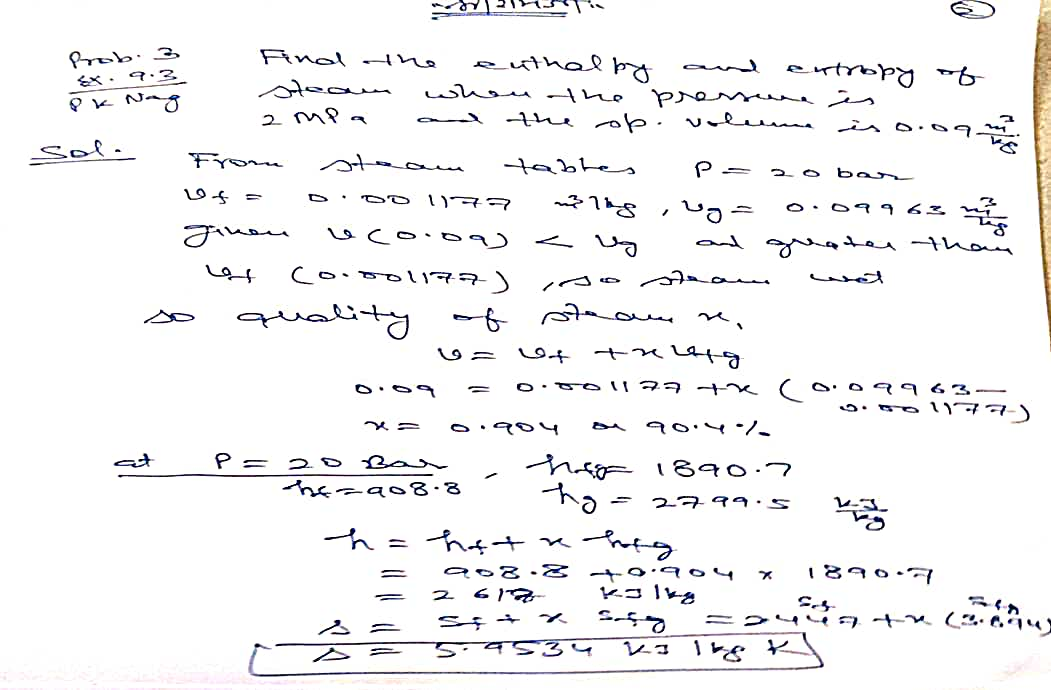 ②
Prob. 3 Find the enthalpy and entropy of
Ex. 9.3 steam when the pressure is
P K Nag 2 MPa and the sp. volume is 0.09 m³/kg.
Sol. From steam tables P = 20 bar
vf = 0.001177 m³/kg, vg = 0.09963 m³/kg
given v (0.09) < vg and greater than
vf (0.001177), so steam wet
so quality of steam x,
v = vf + x vfg
0.09 = 0.001177 + x (0.09963 -
0.001177)
x = 0.904 or 90.4%
at P = 20 Bar, hfg = 1890.7
hf = 908.8 hg = 2799.5 kJ/kg
h = hf + x hfg
= 908.8 + 0.904 x 1890.7
= 2618 kJ/kg
sf sfg
s = sf + x sfg = 2.447 + x (3.894)
s = 5.9534 kJ/kg K